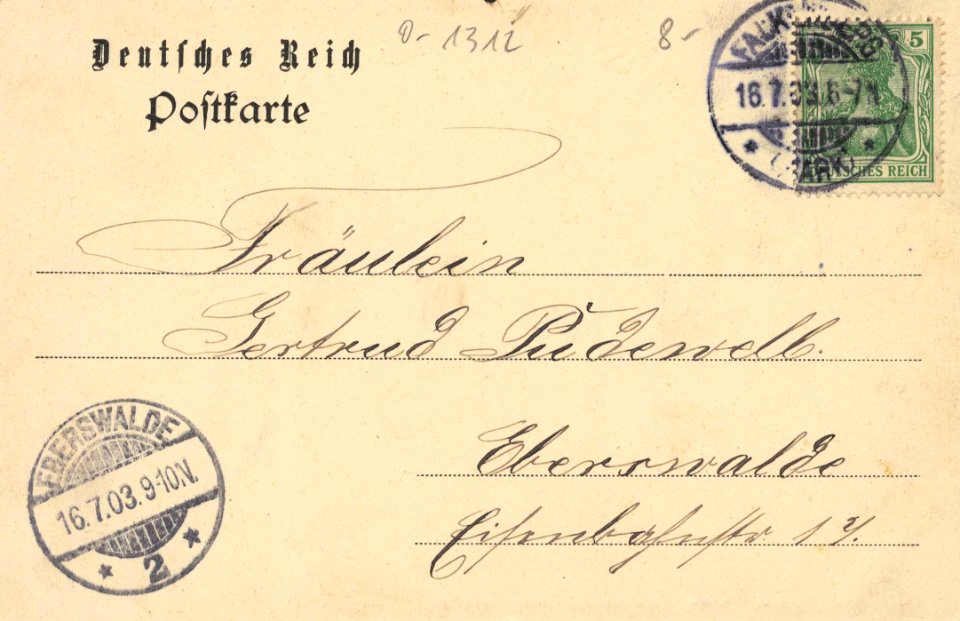 Deutsches Reich
Postkarte
0- 1312
8-
FALKENBERG
16.7.03.6-7N.
(MARK)
5
DEUTSCHES REICH
Fräulein
Gertrud Pudewell.
Eberswalde
Eisenbahnstr
EBERSWALDE
16.7.03.9-10.N.
2